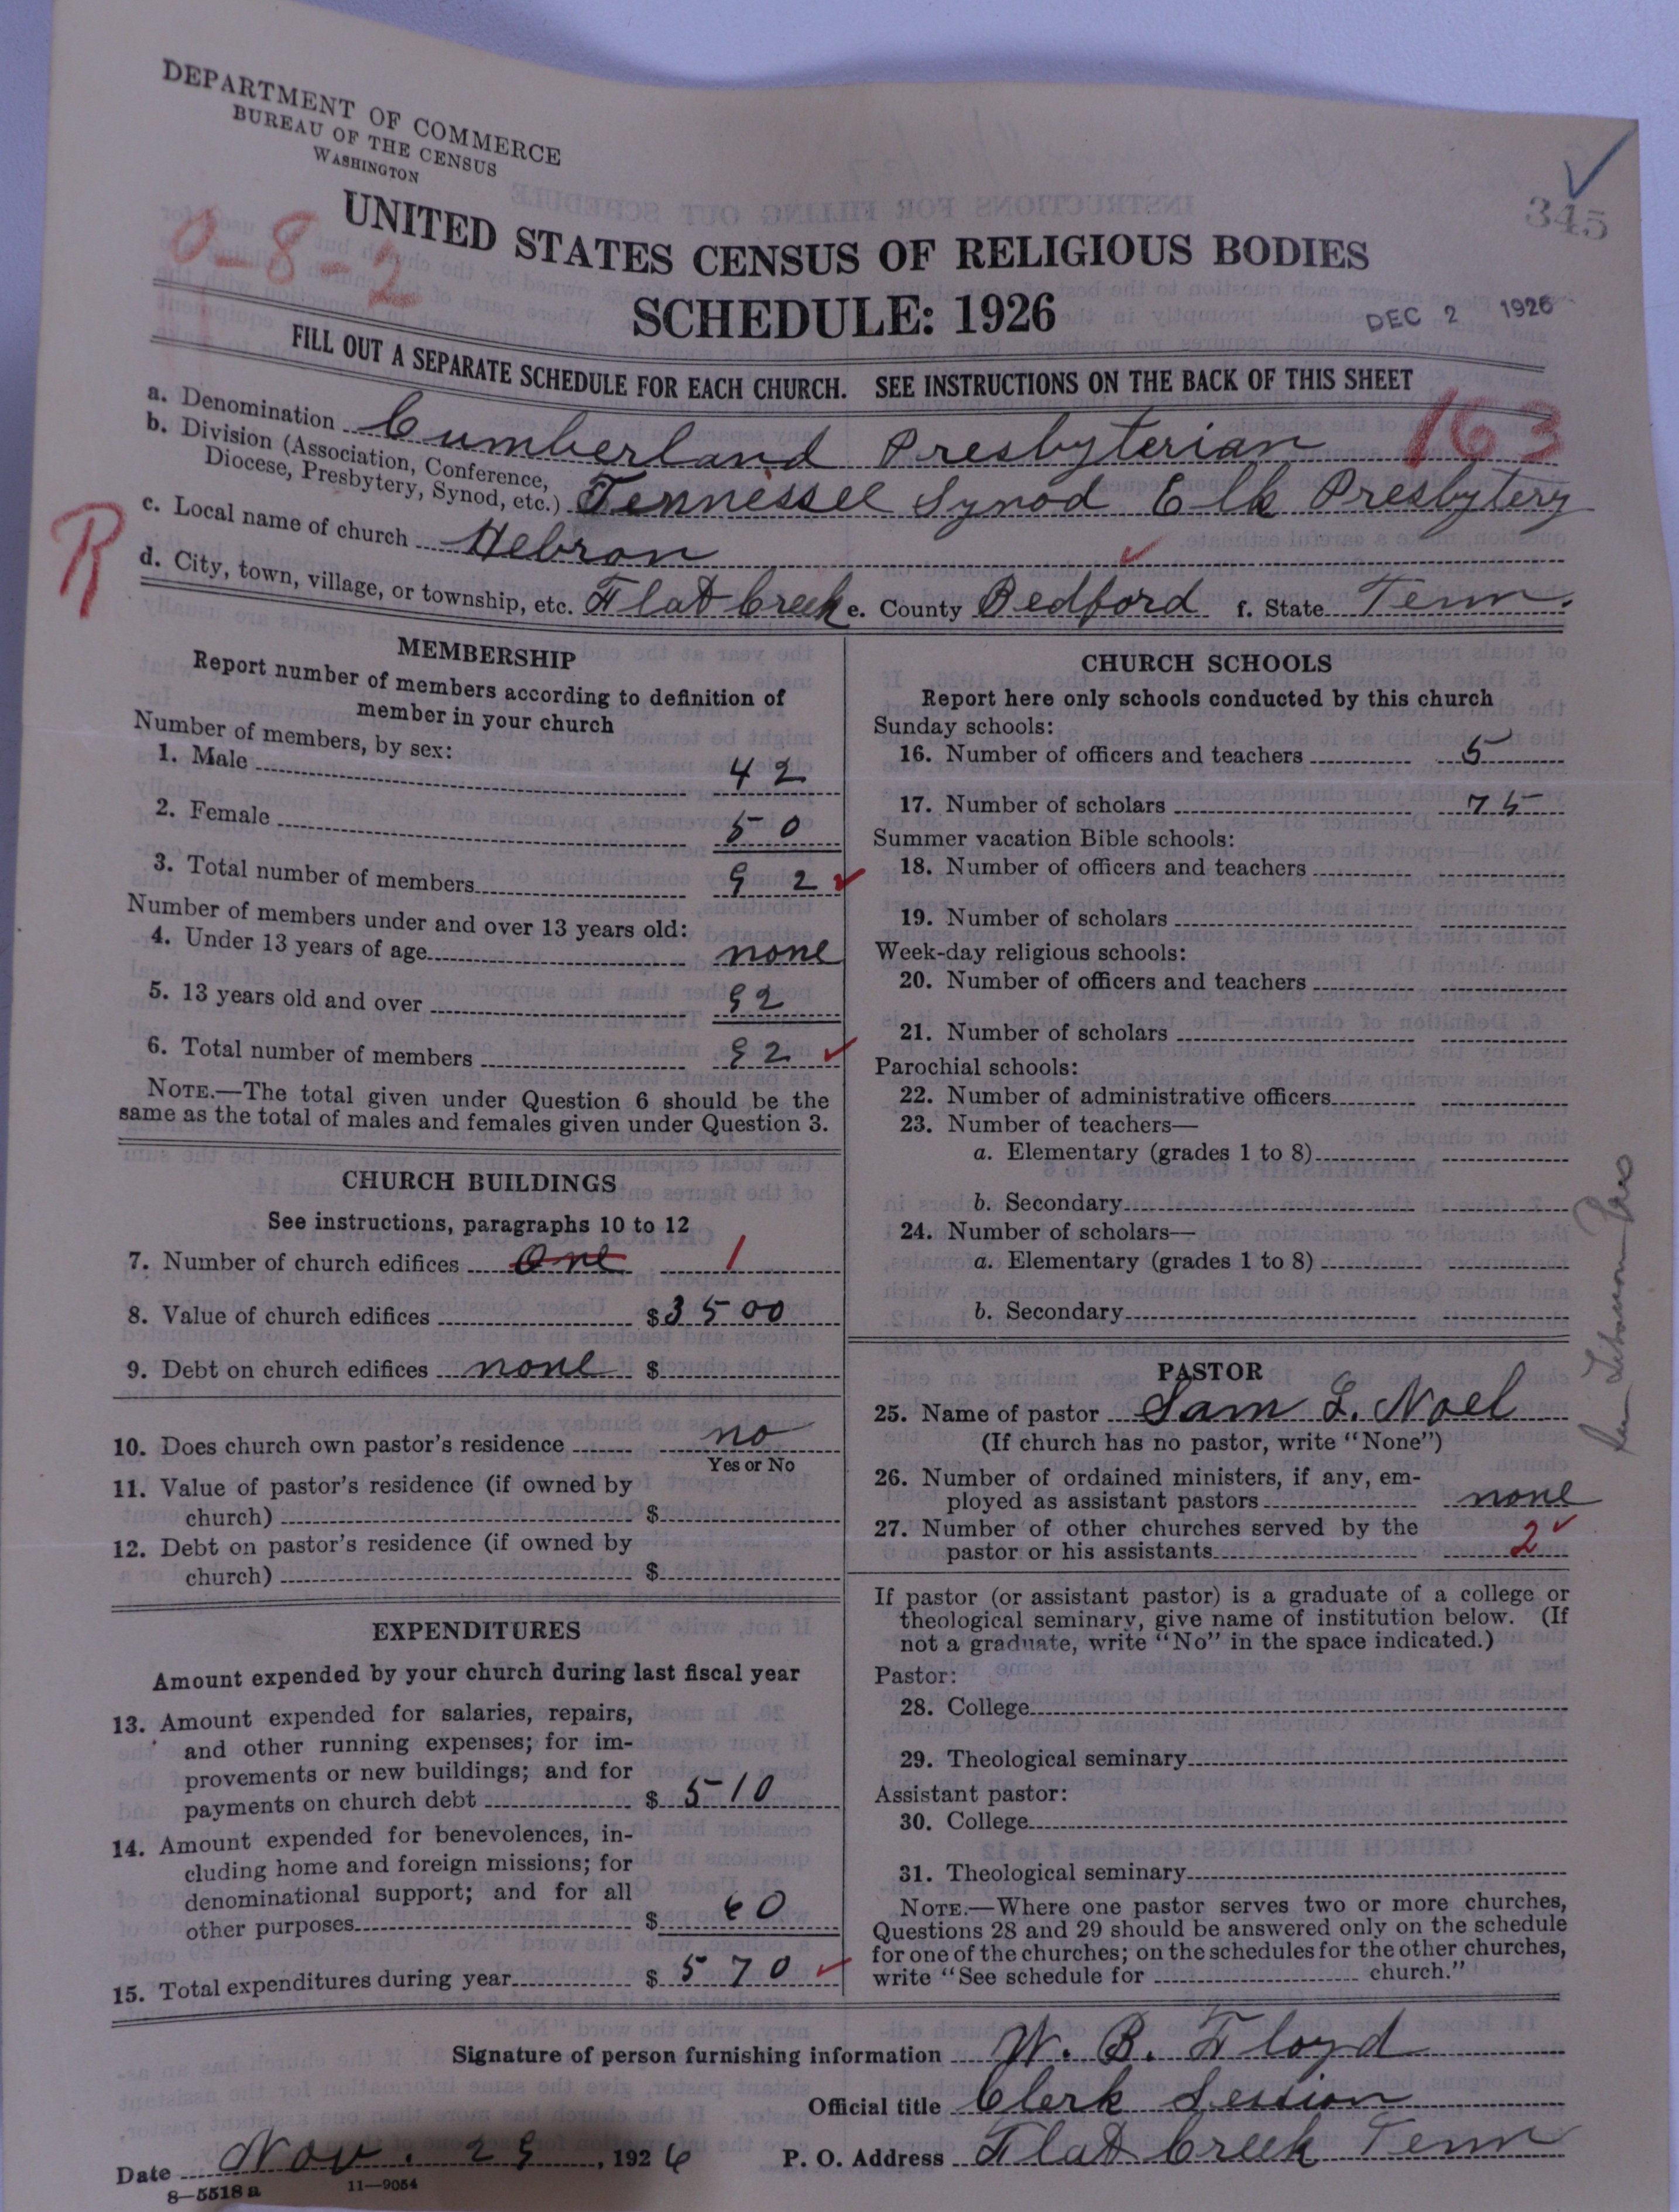 DEPARTMENT OF COMMERCE
BUREAU OF THE CENSUS
WASHINGTON
345
0-8-2
UNITED STATES CENSUS OF RELIGIOUS BODIES
SCHEDULE: 1926
DEC 2 1926
FILL OUT A SEPARATE SCHEDULE FOR EACH CHURCH. SEE INSTRUCTIONS ON THE BACK OF THIS SHEET
163
a. Denomination Cumberland Presbyterian
b. Division (Association, Conference,
Diocese, Presbytery, Synod, etc.) Tennessee Synod Elk Presbytery
R
c. Local name of church Hebron
d. City, town, village, or township, etc. Flat Creek e. County Bedford f. State Tenn.
MEMBERSHIP
Report number of members according to definition of
member in your church
Number of members, by sex:
1. Male 42
2. Female 50
3. Total number of members 92
Number of members under and over 13 years old:
4. Under 13 years of age none
5. 13 years old and over 92
6. Total number of members 92
NOTE.—The total given under Question 6 should be the
same as the total of males and females given under Question 3.
CHURCH BUILDINGS
See instructions, paragraphs 10 to 12
7. Number of church edifices One 1
8. Value of church edifices $3500
9. Debt on church edifices none $
10. Does church own pastor's residence no
Yes or No
11. Value of pastor's residence (if owned by
church) $
12. Debt on pastor's residence (if owned by
church) $
EXPENDITURES
Amount expended by your church during last fiscal year
13. Amount expended for salaries, repairs,
and other running expenses; for im-
provements or new buildings; and for
payments on church debt $ 510
14. Amount expended for benevolences, in-
cluding home and foreign missions; for
denominational support; and for all
other purposes $ 60
15. Total expenditures during year $ 570
CHURCH SCHOOLS
Report here only schools conducted by this church
Sunday schools:
16. Number of officers and teachers 5
17. Number of scholars 75
Summer vacation Bible schools:
18. Number of officers and teachers
19. Number of scholars
Week-day religious schools:
20. Number of officers and teachers
21. Number of scholars
Parochial schools:
22. Number of administrative officers
23. Number of teachers—
a. Elementary (grades 1 to 8)
b. Secondary
24. Number of scholars—
a. Elementary (grades 1 to 8)
b. Secondary
PASTOR
25. Name of pastor Sam L. Noel
(If church has no pastor, write "None")
26. Number of ordained ministers, if any, em-
ployed as assistant pastors none
27. Number of other churches served by the
pastor or his assistants 2
If pastor (or assistant pastor) is a graduate of a college or
theological seminary, give name of institution below. (If
not a graduate, write "No" in the space indicated.)
Pastor:
28. College
29. Theological seminary
Assistant pastor:
30. College
31. Theological seminary
NOTE.—Where one pastor serves two or more churches,
Questions 28 and 29 should be answered only on the schedule
for one of the churches; on the schedules for the other churches,
write "See schedule for church."
Signature of person furnishing information W. B. Floyd
Official title Clerk Session
Date Nov. 29, 1926 P. O. Address Flat Creek Tenn
8—5518a 11—9054